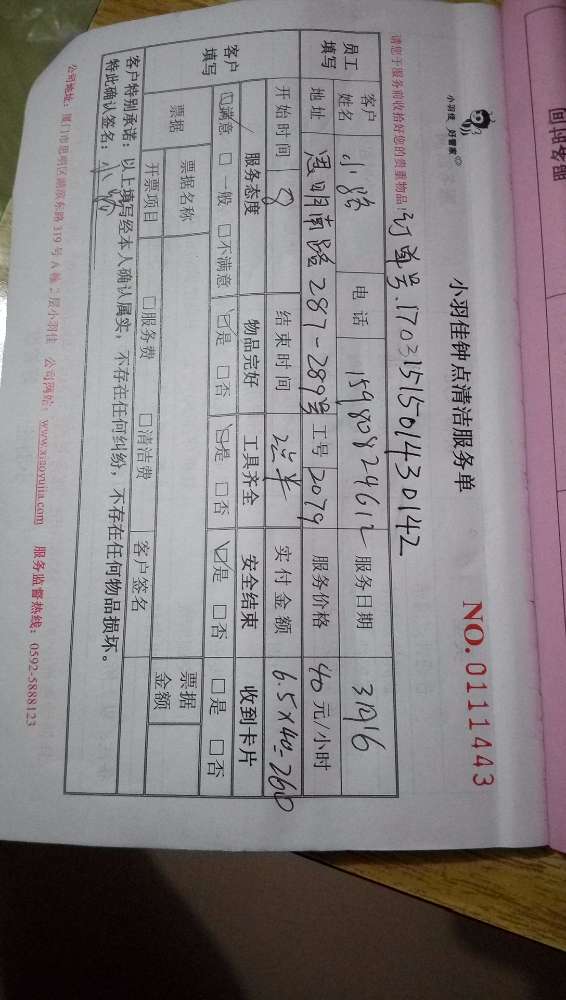 小羽佳 好管家
小羽佳钟点清洁服务单
NO. 0111443
请您于服务前收拾好您的贵重物品！
订单号:1703151501430142
员工填写 客户姓名 小路 电话 15980824612 服务日期 3月16
地址 思明南路287-289号 工号 2079 服务价格 40元/小时
开始时间 8 结束时间 2点半 实付金额 6.5×40=260
客户填写 服务态度 物品完好 工具齐全 安全结束 收到卡片
☑满意 □一般 □不满意 ☑是 □否 ☑是 □否 ☑是 □否 □是 □否
票据 票据名称 票据金额
开票项目 □服务费 □清洁费 客户签名
客户特别承诺：以上填写经本人确认属实，不存在任何纠纷，不存在任何物品损坏。
特此确认签名：小路
公司地址：厦门市思明区湖滨东路319号A栋二层小羽佳 公司网站：www.xiaoyujia.com 服务监督热线：0592-5888123